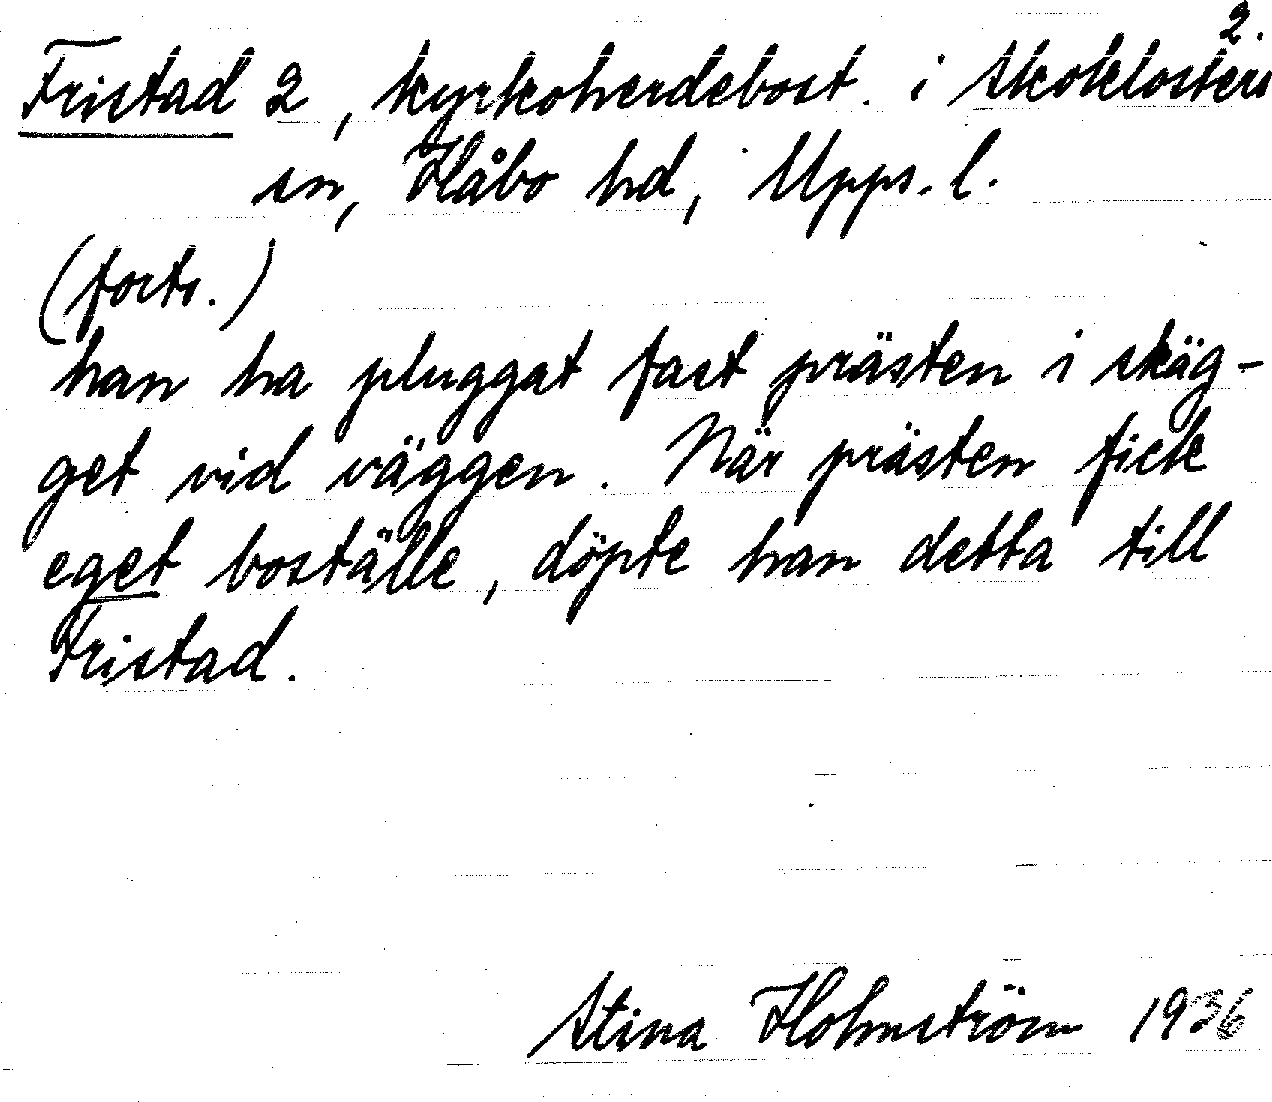 2.
Fristad 2, kyrkoherdebost. i Skoklosters
sn, Håbo hd, Upps. l.
(forts.)
han ha pluggat fast prästen i skäg-
get vid väggen. När prästen fick
eget boställe, döpte han detta till
Fristad.
Stina Holmström 1936